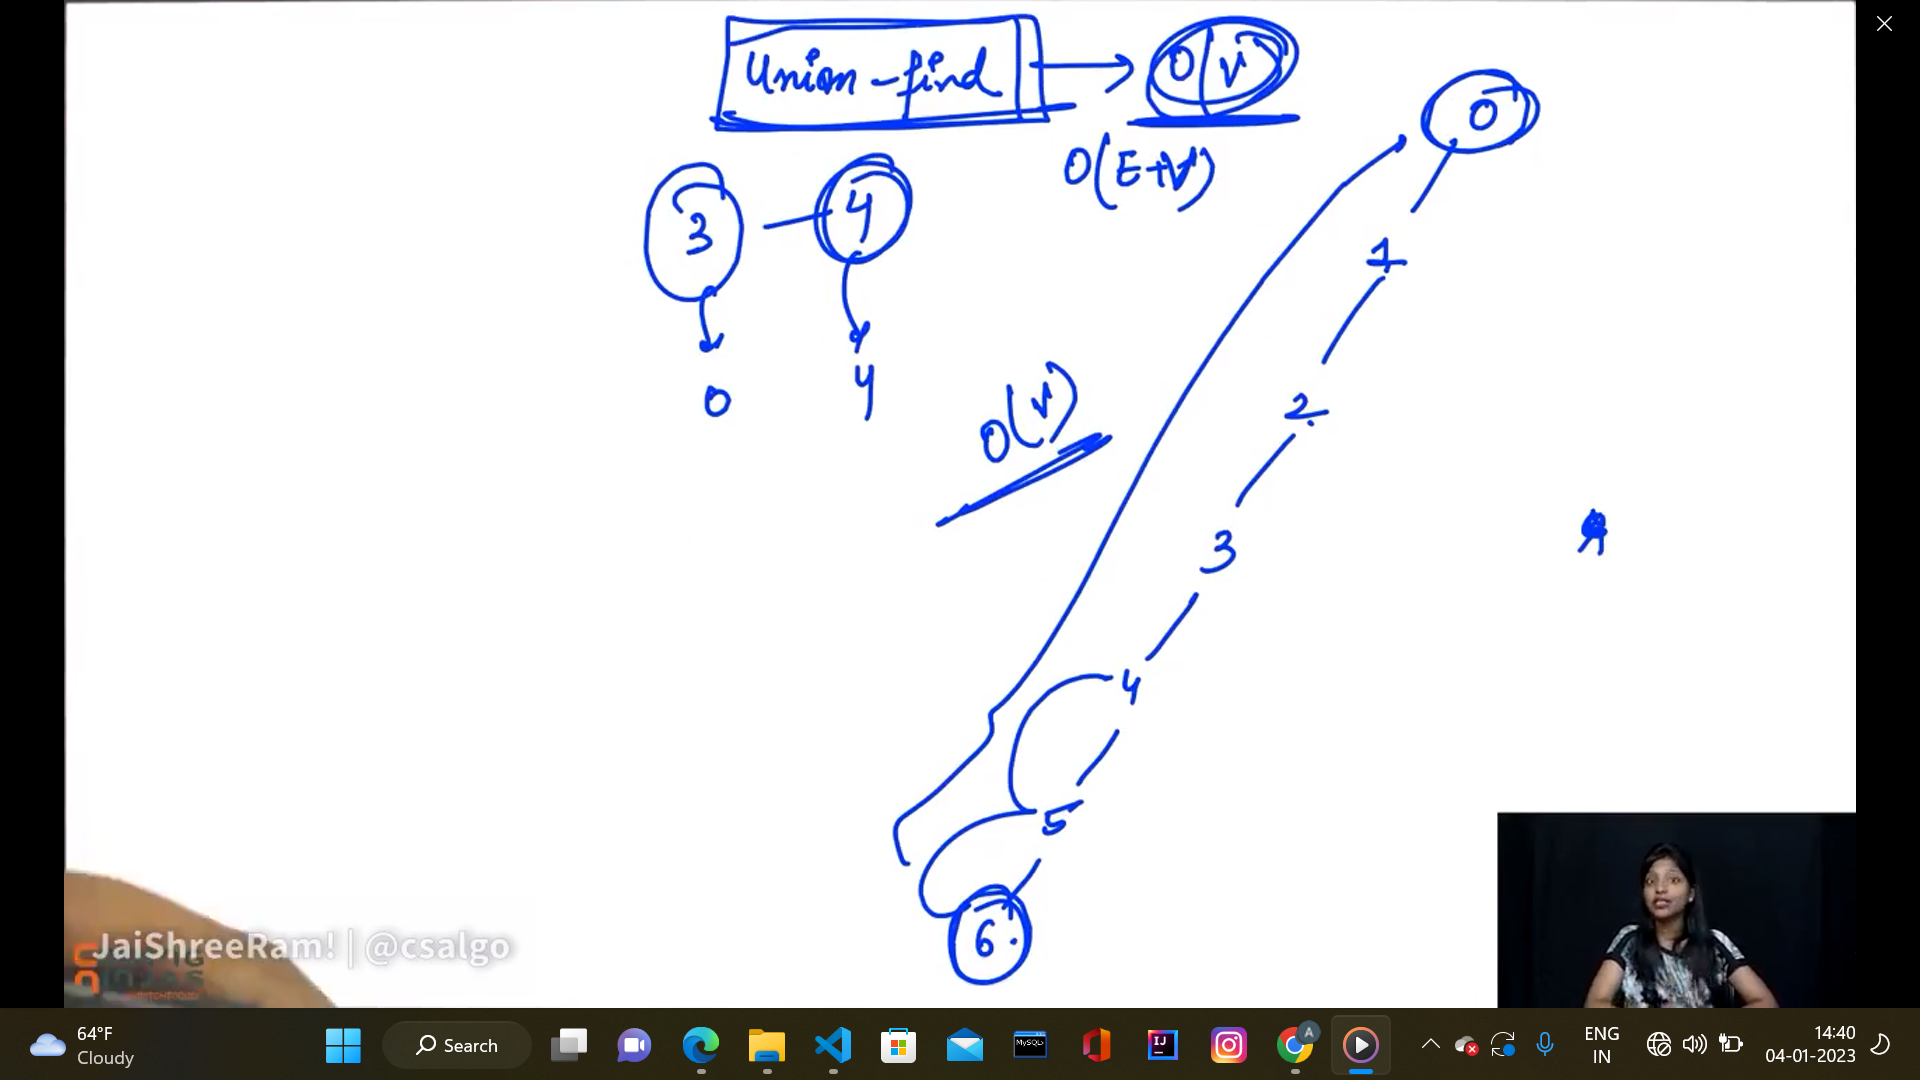 Union-find → O(V)
O(E+V)
3 — 4
0
4
O(V)
0
1
2
3
4
5
6
JaiShreeRam! | @csalgo
64°F
Cloudy
Search
MySQL
IJ
A
ENG
IN
14:40
04-01-2023